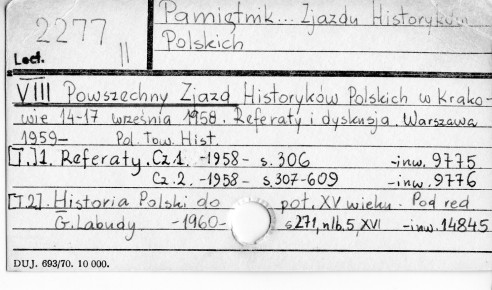 2277
II
Lect.
Pamiętnik... Zjazdu Historyków
Polskich
VIII Powszechny Zjazd Historyków Polskich w Krako-
wie 14-17 września 1958. Referaty i dyskusja. Warszawa
1959- Pol. Tow. Hist.
[T.]1. Referaty. Cz.1. -1958- s.306 -inw. 9775
Cz.2. -1958- s.307-609 -inw. 9776
[T.2]. Historia Polski do poł. XV wieku. Pod red
G. Labudy -1960- s271, nlb.5, XVI -inw. 14845
DUJ. 693/70. 10 000.